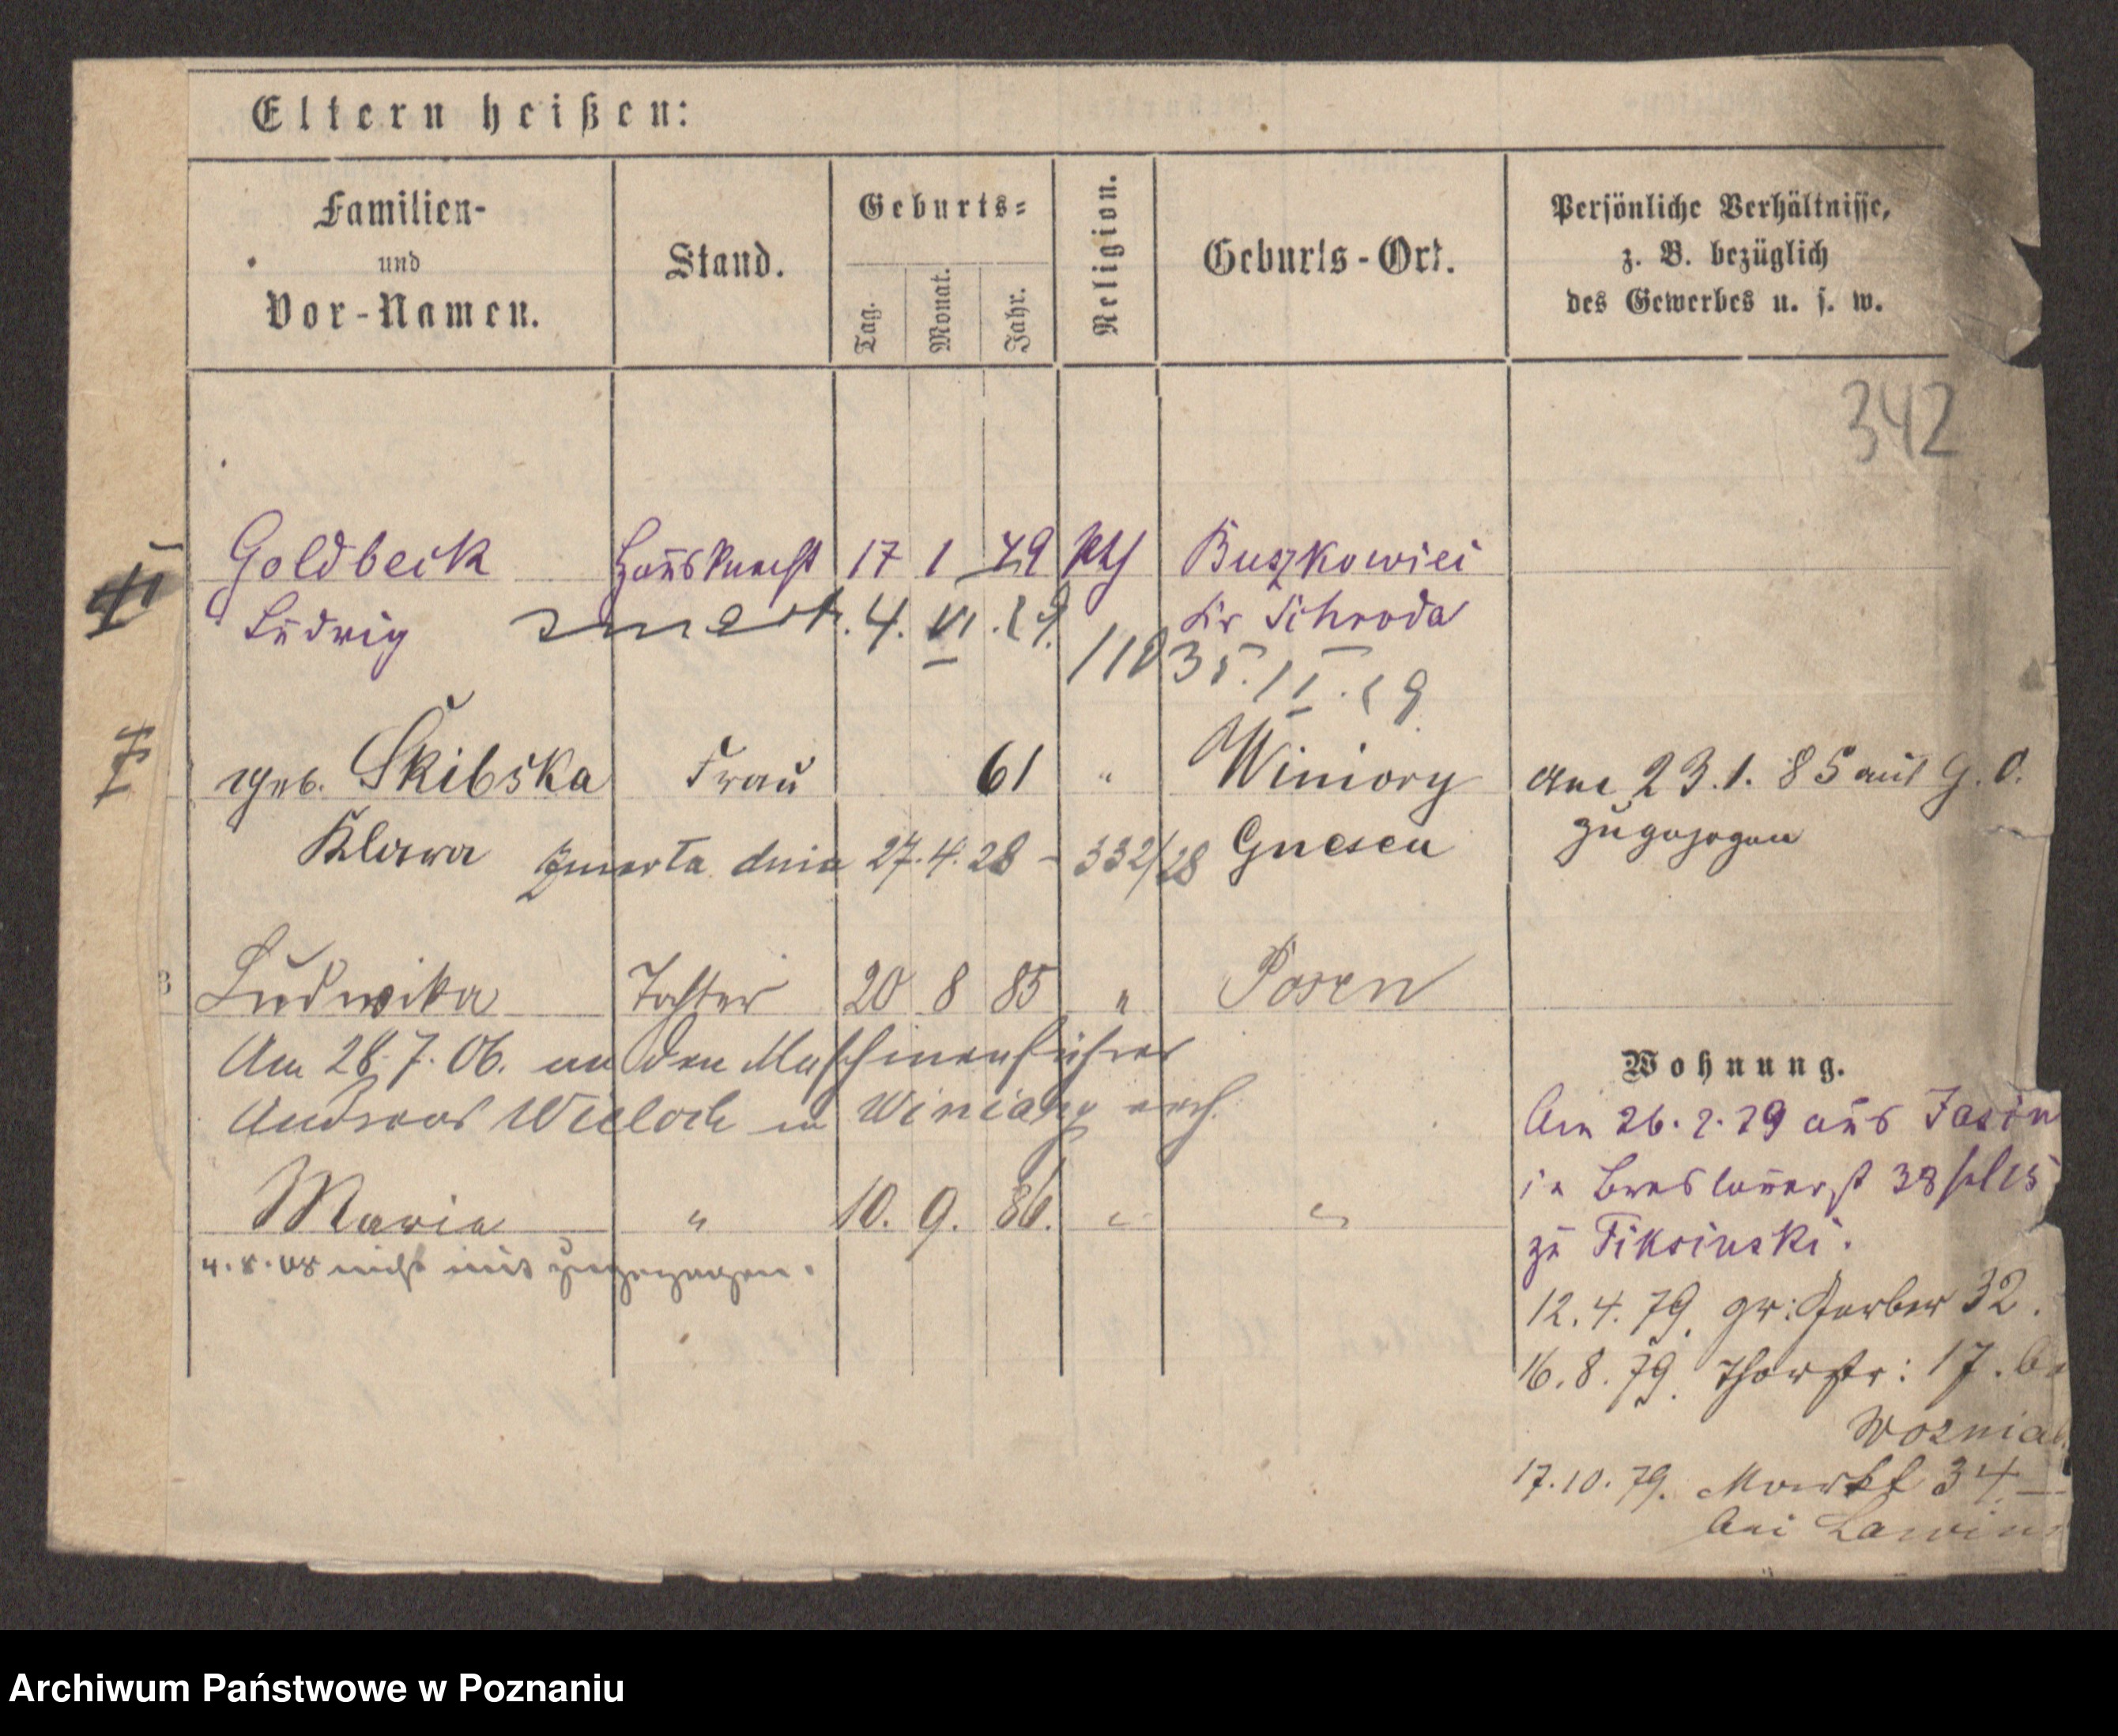 Eltern heißen:
Familien-
und
Vor-Namen.
Stand.
Geburts-
Tag.
Monat.
Jahr.
Religion.
Geburts-Ort.
Persönliche Verhältnisse,
z. B. bezüglich
des Gewerbes u. s. w.
342
Goldbeck Hausknecht 17 1 49 kth Buszkowiec
Ludwig 4. VI. 19. Kr Schroda
geb. Skibska Frau 61 " Winiory am 23.1.85 aus G. O.
Klara Zmarła dnia 27.4.28 - 332/28 Gnesen zugezogen
Ludwika Tochter 20 8 85 " Posen
Am 28.7.06. an den Maschinenführer
Andreas in Winiary verh.
Maria " 10. 9. 86. " "
4.8.08 nicht mit zugezogen.
Wohnung.
Am 26.2.79 aus
in Breslauerst 38
zu Fiksinski.
12.4.79. gr: Gerber 32.
16.8.79. Thorstr: 17.
Wozniak
17.10.79. Markt 34 -
bei
Archiwum Państwowe w Poznaniu